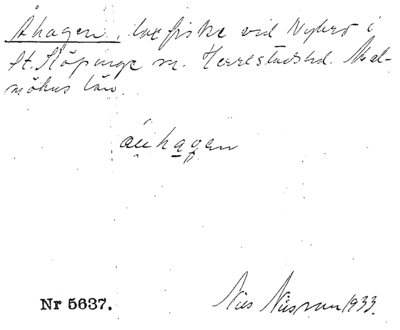 Åhagen, laxfiske vid Nybro i
St. Köpinge sn. Herrestadshd. Mal-
möhus län.
åuhagen
Nr 5637. Nils Nilsson 1933.